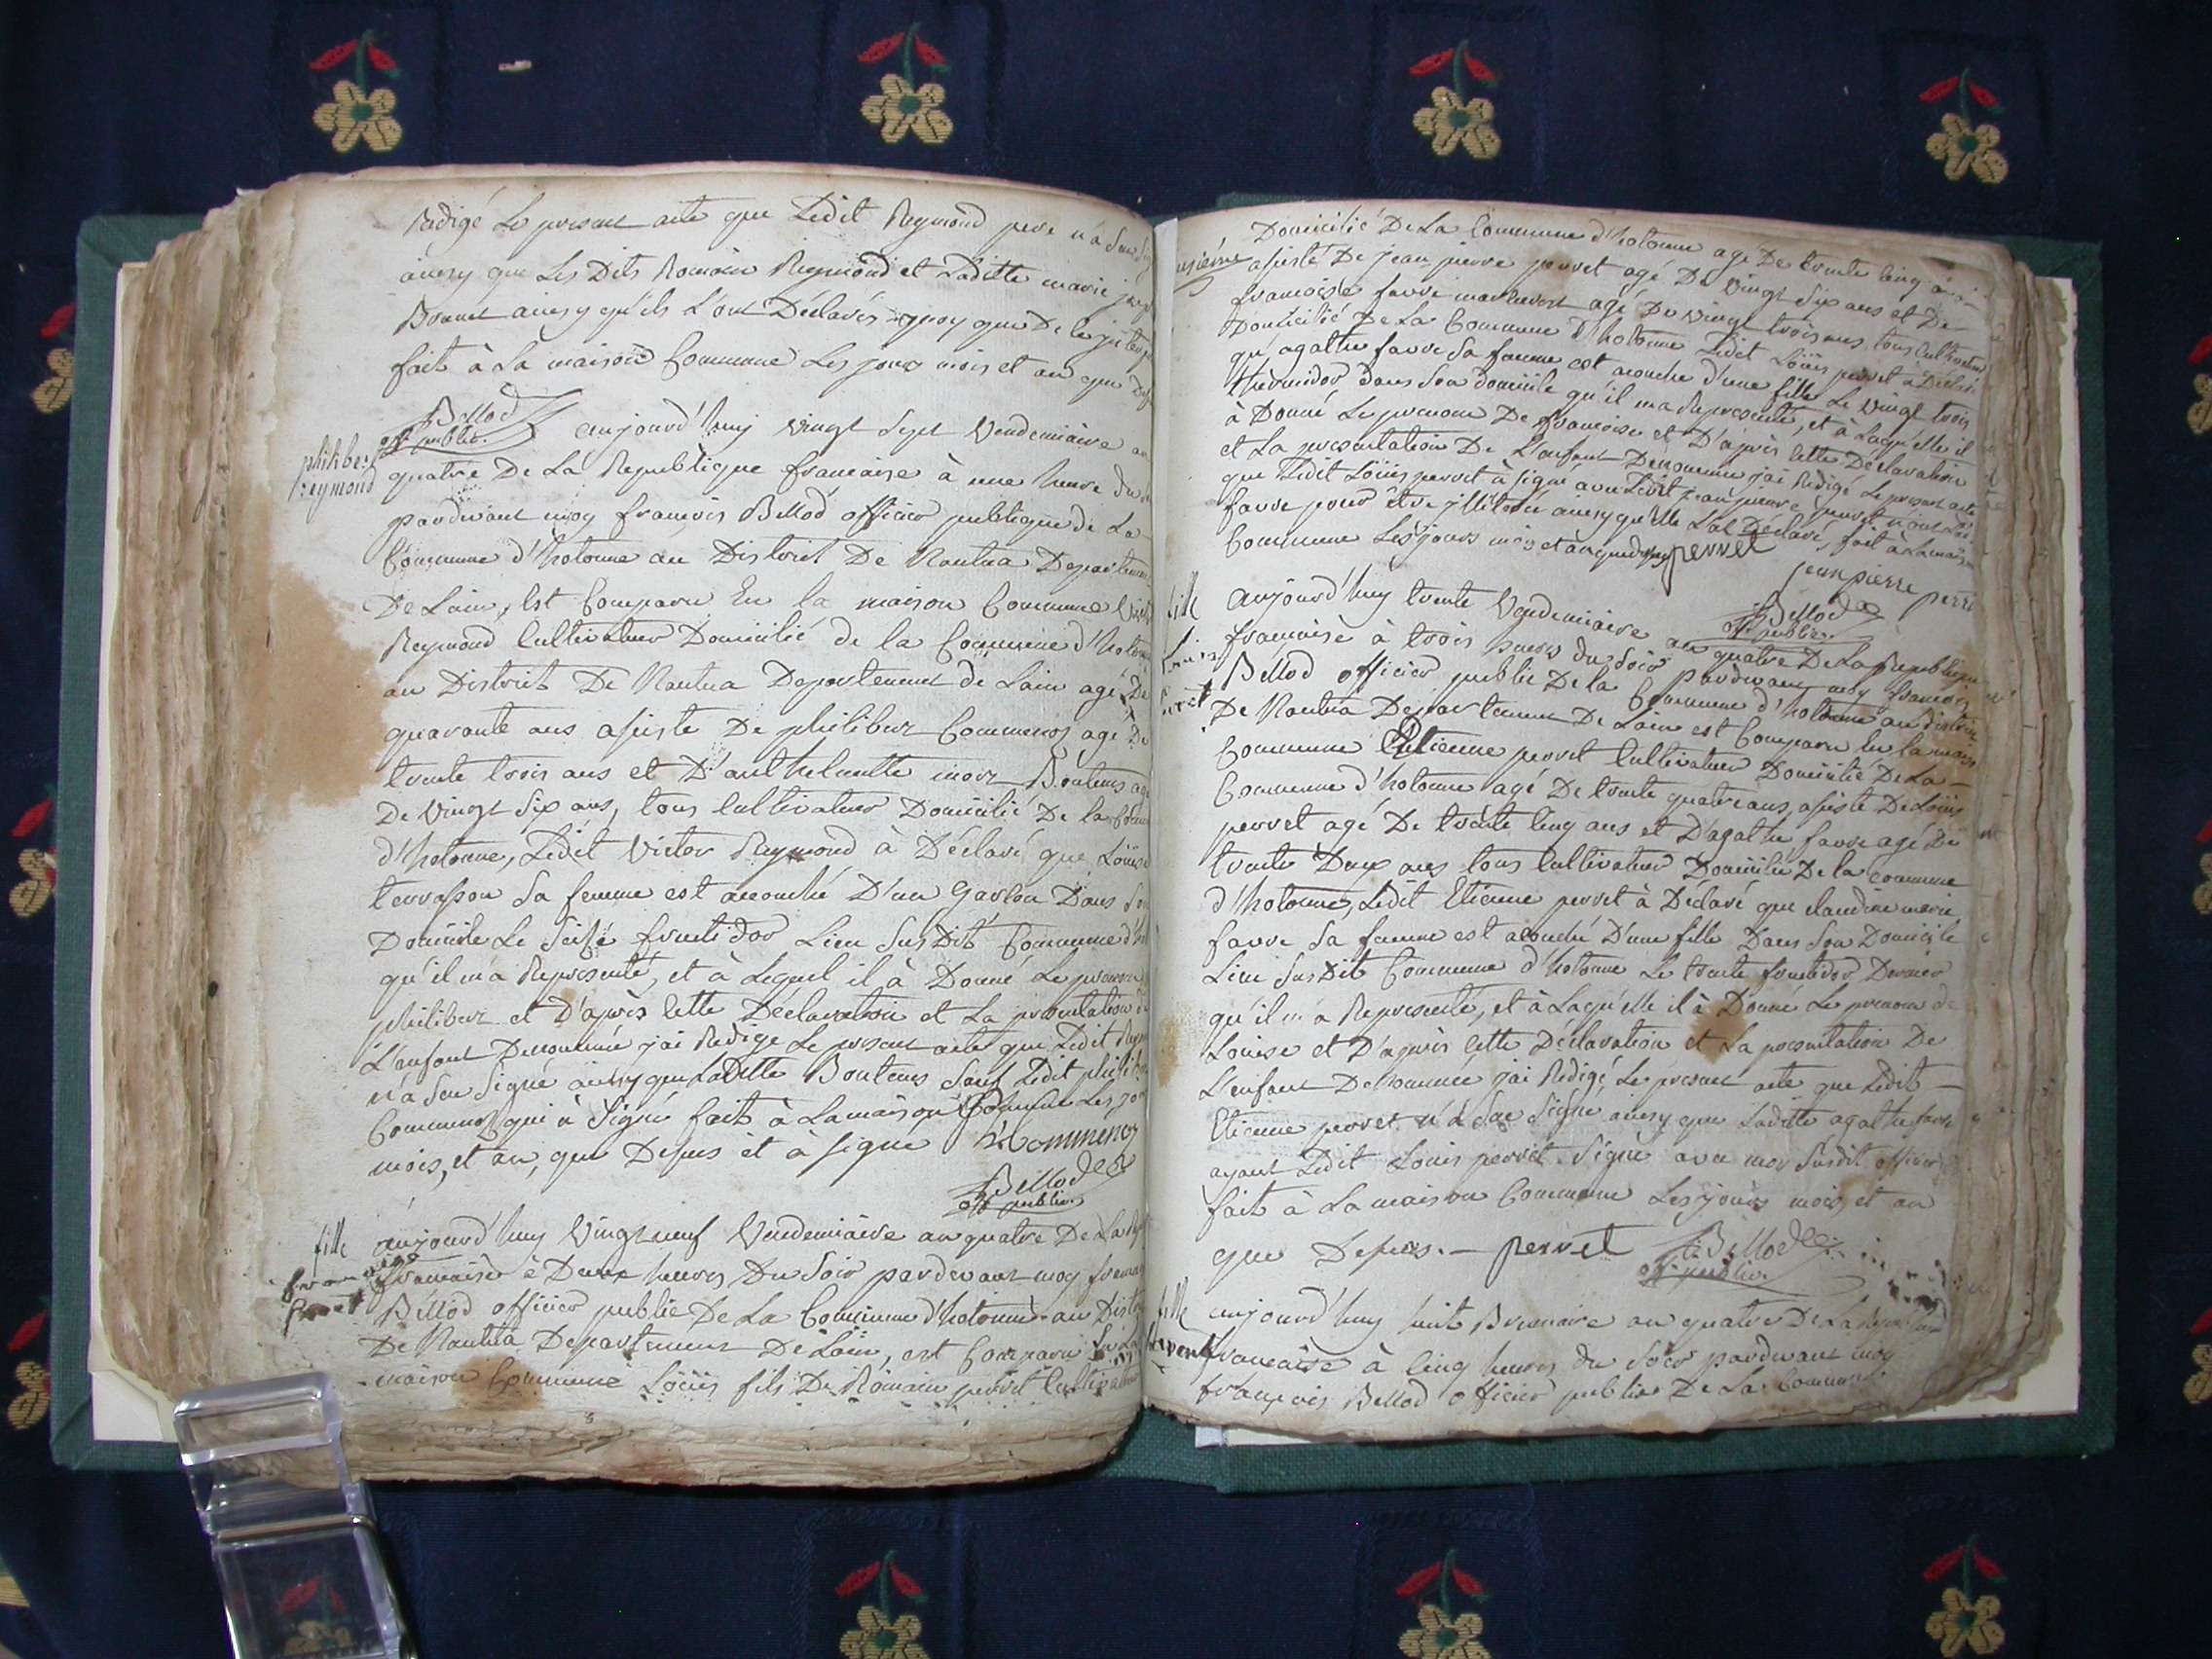 Redigé Le present acte que Ledit Reymond pere n'a Seu
ainsy que Les Dits Romain Reymond et Laditte marie
Bonnet ainsy qu'ils L'ont Déclarés quoy que De le
fait à La maison Commune Les jour mois et an que
Bellod
off. public.
philiber
reymond
aujourd'huy vingt Sept Vendemiaire an
quatre De La Republique francaise à une heure du
pardevant moy francois Bellod officier publique de La
Commune d'hotonne au District De Nantua Departement
De Lain, Est Comparu En la maison Commune
Reymond Cultivateur Domicilié de la Commune d'hotonne
au District De Nantua Departement de Lain agé De
quarante ans asisté De philibert Commenoz agé De
trente trois ans et D'anthelmette Bontems agé
De Vingt Six ans, tous Cultivateur Domicilié De la
d'hotonne, Ledit Victor Reymond à Déclaré que Louise
terrasson Sa femme est acouché D'un Garcon Dans Son
Domicile Le Seize fructidor Lieu Susdit Commune
qu'il m'a Representé, et à Lequel il à Donné Le prenom
philibert et D'après Cette Déclaration et La presentation
L'enfant Denommée jai Redigé Le present acte que Ledit
n'a Seu Signé ainsy que Laditte Bontems Sauf Ledit
Commenoz qui à Signé fait à La maison Commune Les jour
mois, et an, que Desus et à signe Commenoz
Bellod
off. public.
fille
francoise
Perret
aujourd'huy Vingt neuf Vendemiaire an quatre De La
francaise à Deux heures Du Soir pardevant moy
Bellod officier public De La Commune d'hotonne au
De Nantua Departement De Lain, est Comparu En La
maison Commune Loüis fils De Romain perret Cultivateur
Domicilié De La Commune d'hotonne agé De trente Cinq ans
asisté De jean pierre perret agé De Vingt Six ans et De
francoise favre agé De Vingt trois ans tous Cultivateur
Domicilié De La Commune D'hotonne Ledit Loüis perret à Déclaré
qu'agathe favre Sa femme est acouché d'une fille Le Vingt trois
thermidor dans Son domicile qu'il ma Representé, et à Laqu'elle il
à Donné Le prenom De francoise et D'après Cette Déclaration
et La presentation De L'enfant Denommée jai Redigé Le present acte
que Ledit Loüis perret à signé avec Ledit jean pierre perret
favre pour être illiterée ainsy qu'elle L'at Declaré, fait à La maison
Commune Les jours mois et an que desus perret
jean pierre
Bellod
off. public.
fille
aujourd'huy trente Vendemiaire an quatre De La Republique
francaise à trois heures du Soir Pardevant moy francois
Bellod officier public De la Commune d'hotonne au district
De Nantua Departement De Lain est Comparu En la maison
Commune Etienne perret Cultivateur Domicilié De La
Commune d'hotonne agé De trente quatre ans, asisté De Loüis
perret agé De trente Cinq ans et D'agathe favre agé De
trente Deux ans tous Cultivateur Domicilié De la commune
d'hotonne, Ledit Etienne perret à Déclaré que claudine marie
favre Sa femme est acouché D'une fille Dans Son Domicile
Lieu Susdit Commune d'hotonne Le trente fructidor Dernier
qu'il m'a Representé, et à Laqu'elle il à Donné Le prenom de
Louise et D'après Cette Déclaration et La presentation De
L'enfant Denommée jai Redigé Le present acte que Ledit
Etienne perret n'à Seu Signé ainsy que Laditte agathe favre
ayant Ledit Louis perret Signé avec moy Susdit officier
fait à La maison Commune Les jours mois, et an
que Desus. perret Bellod
off. public.
fille
aujourd'huy huit Brumaire an quatre De La Republique
francaise à Cinq heures du Soir pardevant moy
francois Bellod officier public De La Commune